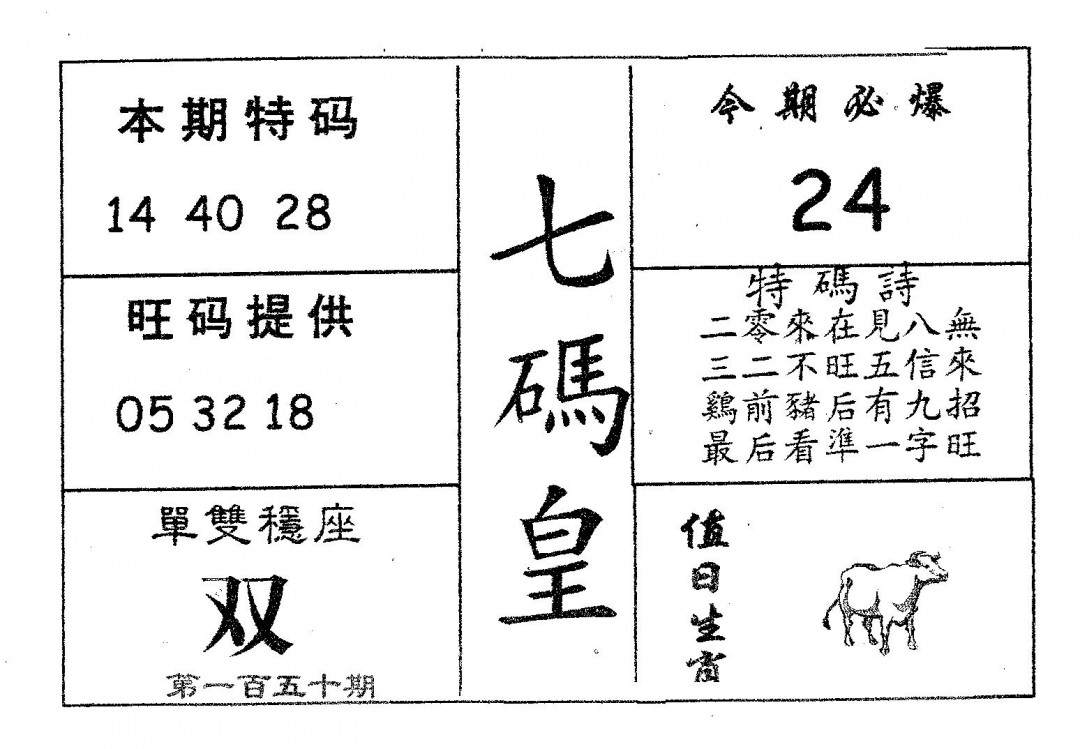 本期特码
14 40 28
旺码提供
05 32 18
單雙穩座
双
第一百五十期
七碼皇
今期必爆
24
特碼詩
二零來在見八無
三二不旺五信來
鷄前豬后有九招
最后看準一字旺
值日生肖